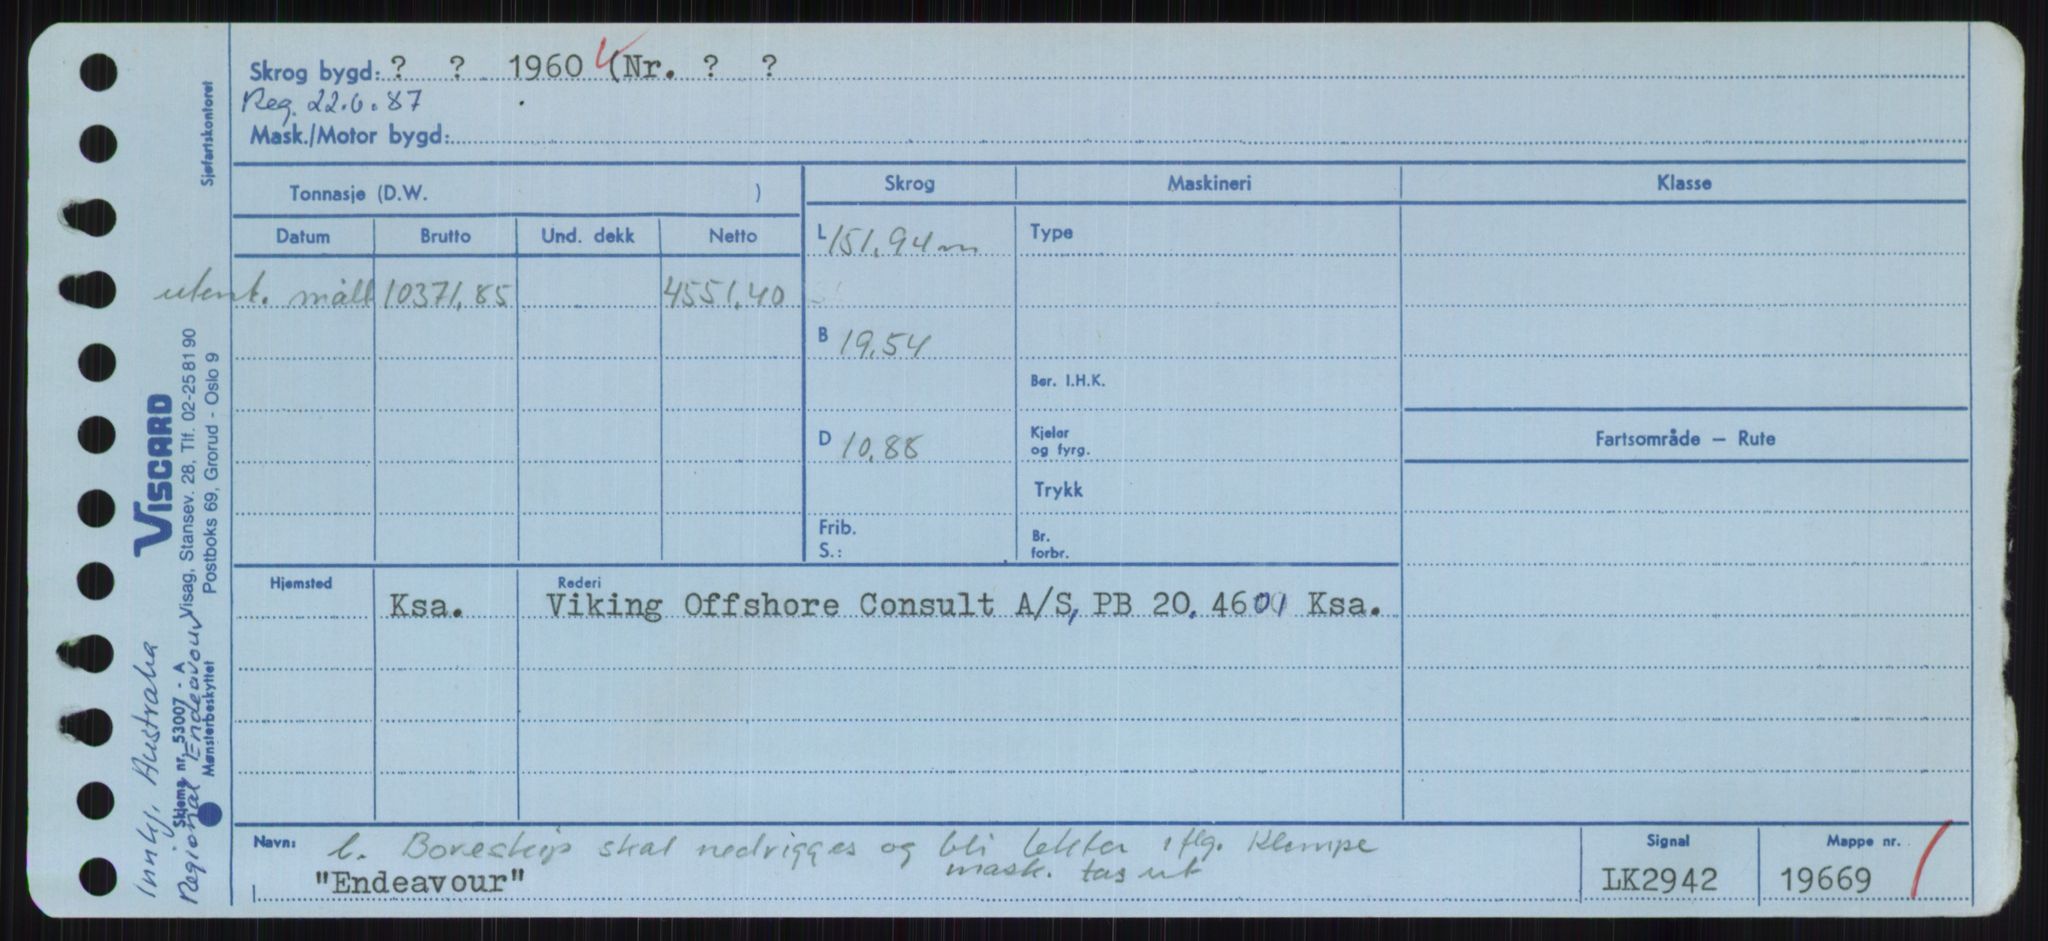 Skrog bygd: ? ? 1960 (Nr. ? ?
Reg. 22.6.87
Mask./Motor bygd:
Tonnasje (D.W. )
Skrog
Maskineri
Klasse
Datum Brutto Und. dekk Netto
L 151,94 m
Type
utenl. målt 10371,85 4551,40
B 19,54
Ber. I.H.K.
D 10,88
Kjeler
og fyrg.
Fartsområde — Rute
Trykk
Frib.
S.:
Br.
forbr.
Hjemsted
Rederi
Ksa. Viking Offshore Consult A/S, PB 20. 4601 Ksa.
Navn: l. Boreskip skal nedrigges og bli lekter iflg. Klempe
mask. tas ut
"Endeavour"
Signal
LK2942
Mappe nr.
19669
Sjøfartskontoret
VISCARD
Visag, Stansev. 28, Tlf. 02-25 81 90
Postboks 69, Grorud - Oslo 9
Skjema nr. 53007 - A
Mønsterbeskyttet
Innkj. Australia
Regional Endeavour